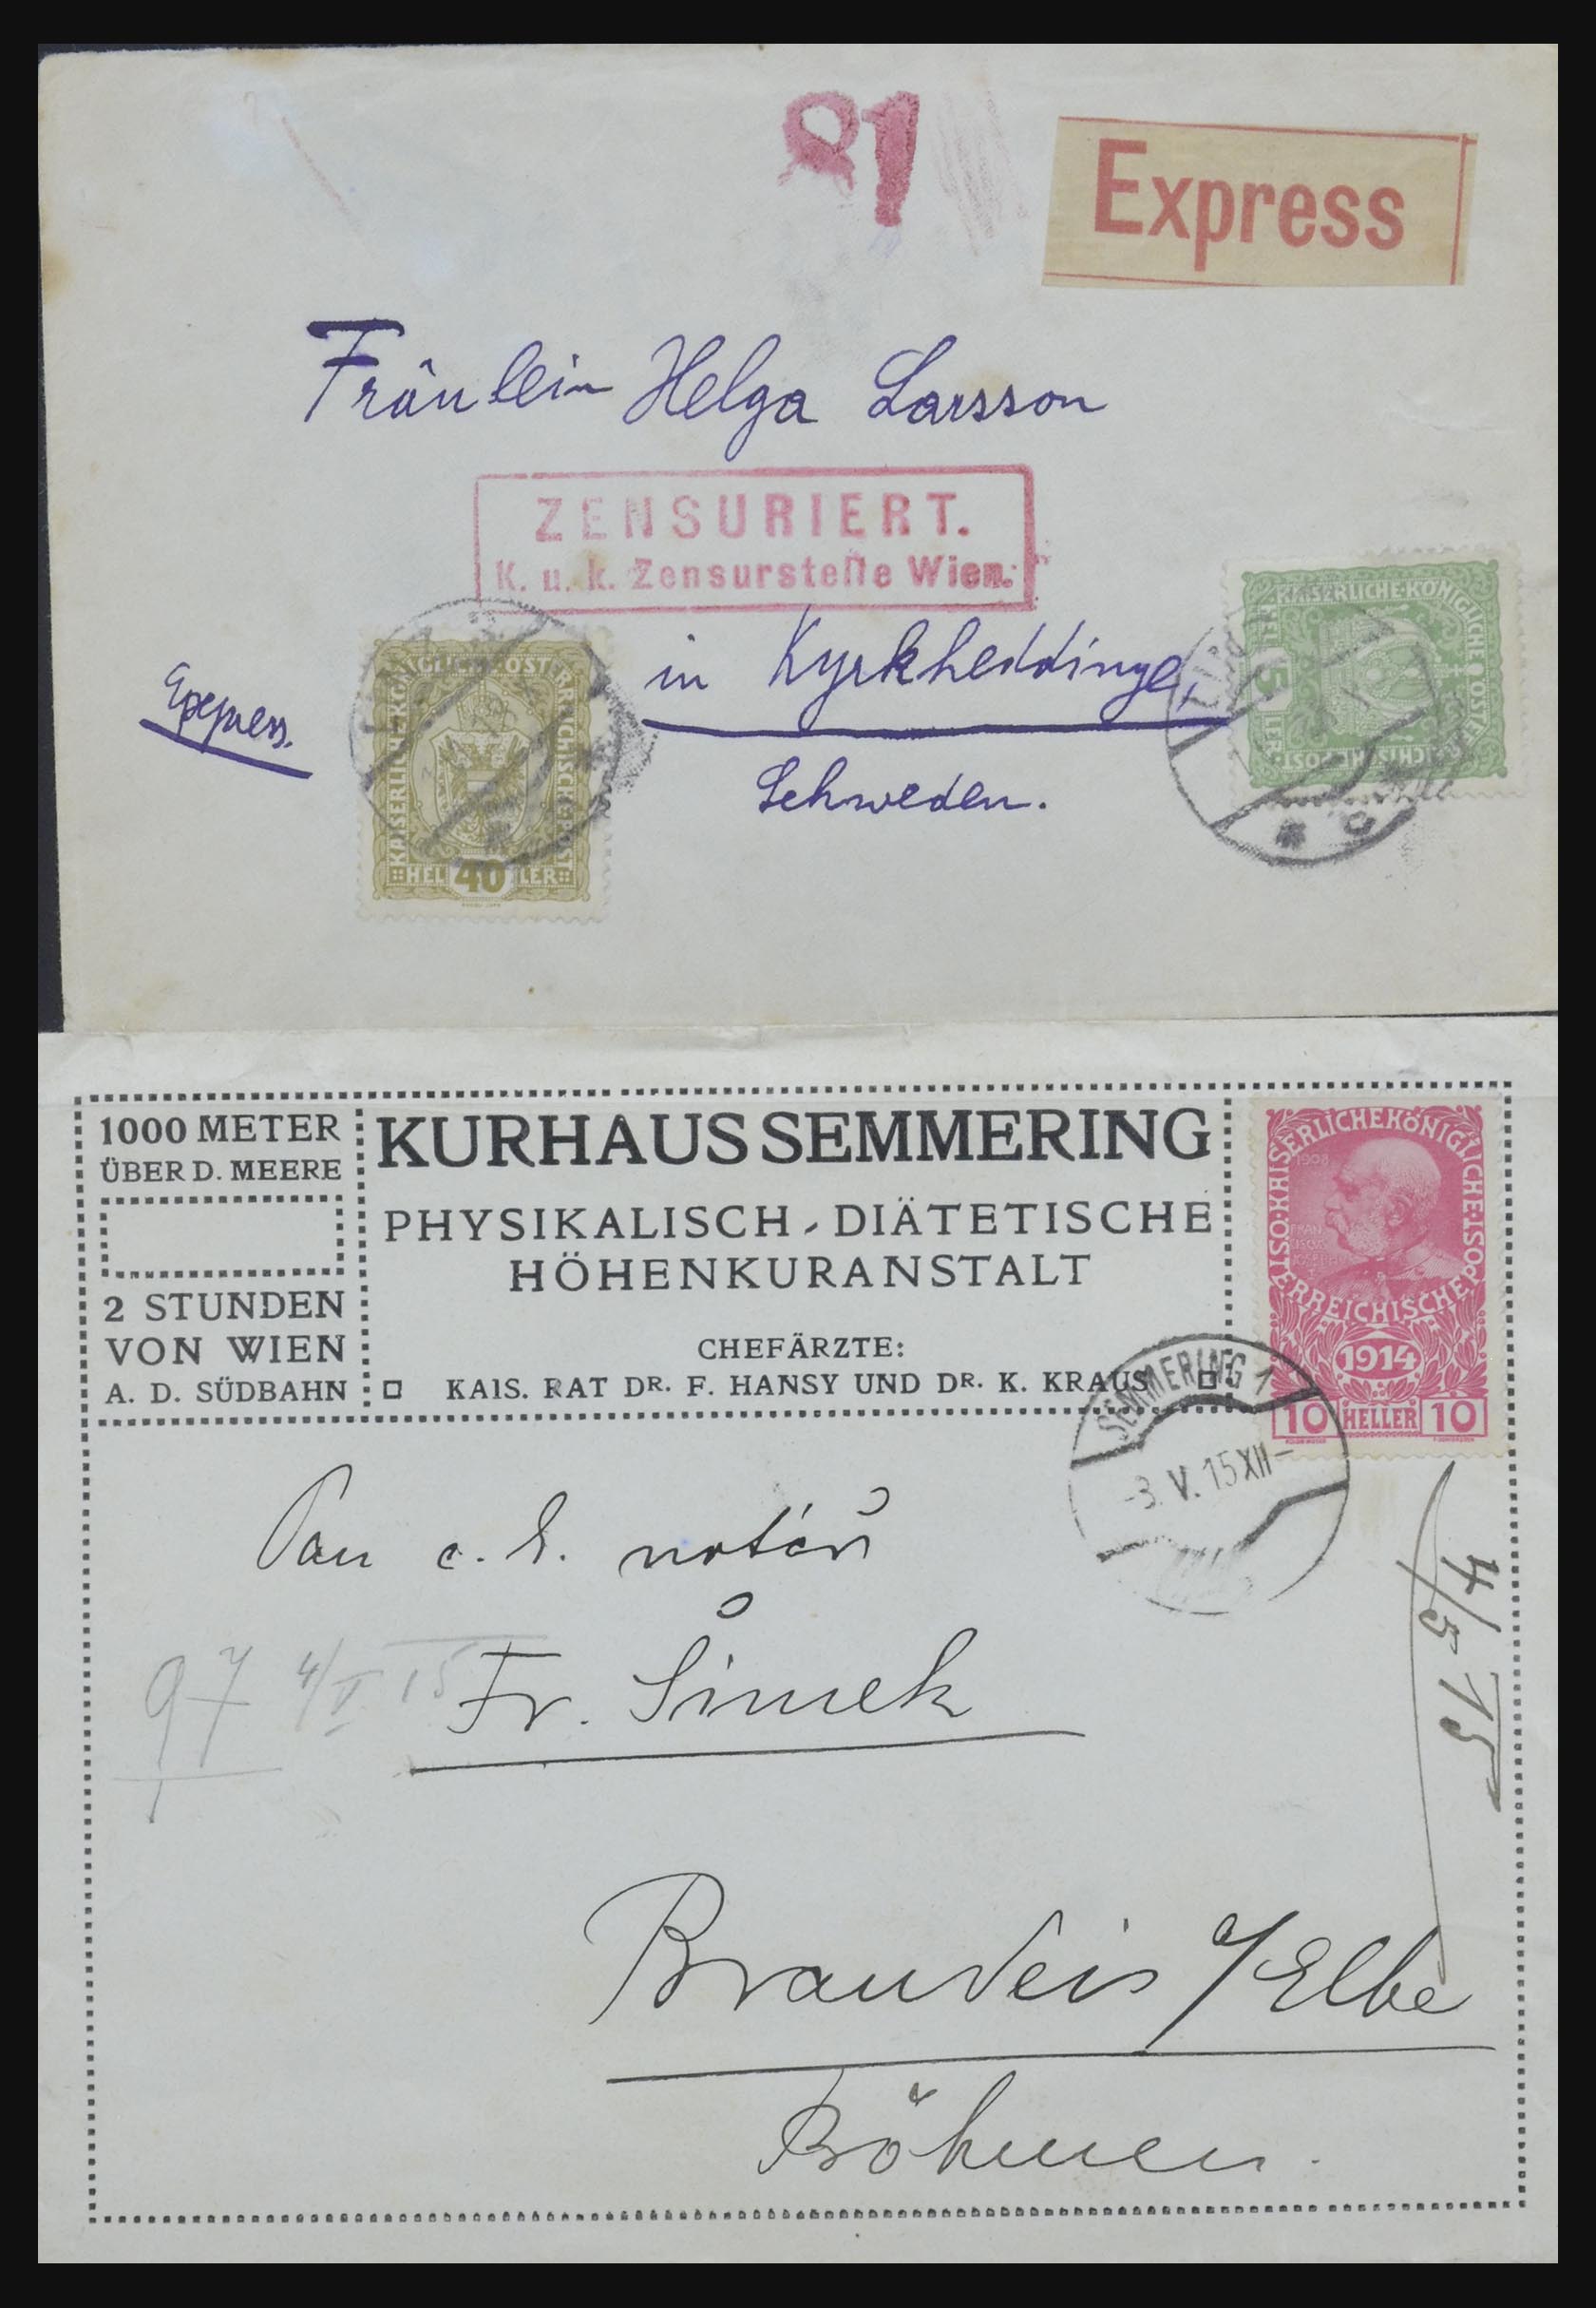 91
Express
Fräulein Helga Larsson
ZENSURIERT.
K. u. k. Zensurstelle Wien.
in Kyrkheddinge,
Express.
Schweden.
KAISERLICH-KÖNIGLICHE ÖSTERREICHISCHE POST
HELLER 40
KAISERLICHE KÖNIGLICHE ÖSTERREICHISCHE POST
5 HELLER
1000 METER
ÜBER D. MEERE
2 STUNDEN
VON WIEN
A. D. SÜDBAHN
KURHAUS SEMMERING
PHYSIKALISCH-DIÄTETISCHE
HÖHENKURANSTALT
CHEFÄRZTE:
KAIS. RAT DR. F. HANSY UND DR. K. KRAUS
KAISERLICHE KÖNIGLICHE ÖSTERREICHISCHE POST
1908
1914
10 HELLER 10
SEMMERING 1
-3. V. 15 XII-
Pan c. k. notář
Fr. Šimek
97 4/V 15
4/5 15
Brandeis a/Elbe
Böhmen.